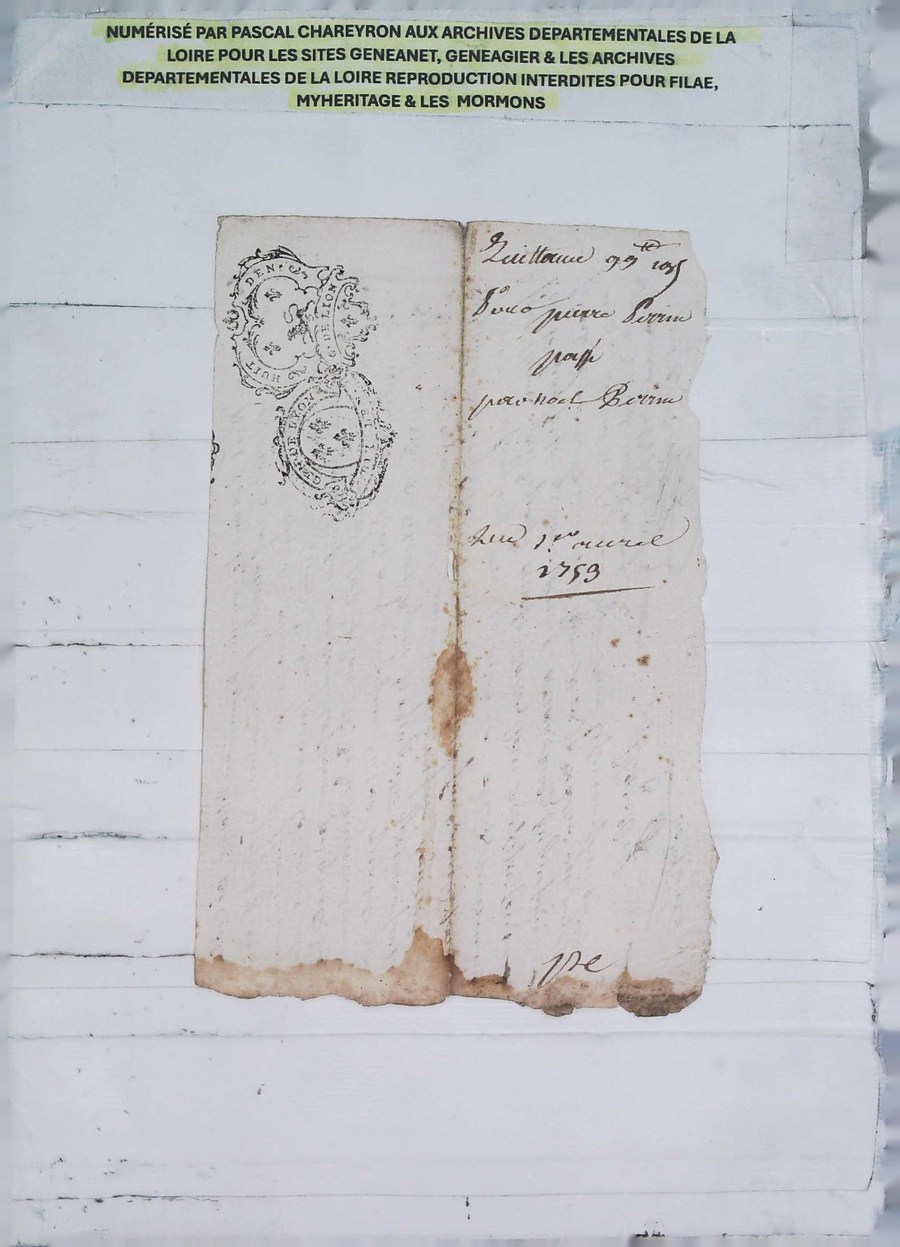 NUMÉRISÉ PAR PASCAL CHAREYRON AUX ARCHIVES DEPARTEMENTALES DE LA
LOIRE POUR LES SITES GENEANET, GENEAGIER & LES ARCHIVES
DEPARTEMENTALES DE LA LOIRE REPRODUCTION INTERDITES POUR FILAE,
MYHERITAGE & LES MORMONS
HUIT DEN.
G. DE LION
GEN. DE LYON
Quittance 99ᵗᵗ 10s
Pour pierre Perrin
passé
par noel Perrin
Du 1er avril
1753